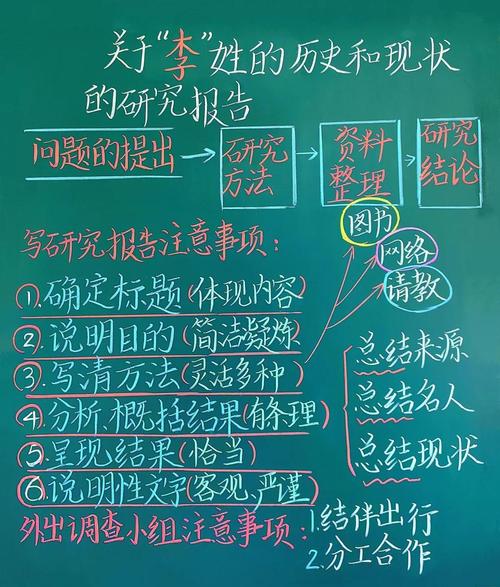 关于“李”姓的历史和现状
的研究报告
问题的提出→研究方法→资料整理→研究结论
图书
网络
请教
写研究报告注意事项：
①.确定标题(体现内容)
②.说明目的(简洁凝炼)
③.写清方法(灵活多种)
④.分析、概括结果(有条理)
⑤.呈现结果(恰当)
⑥.说明性文字(客观、严谨)
总结来源
总结名人
总结现状
外出调查小组注意事项：
1.结伴出行
2.分工合作